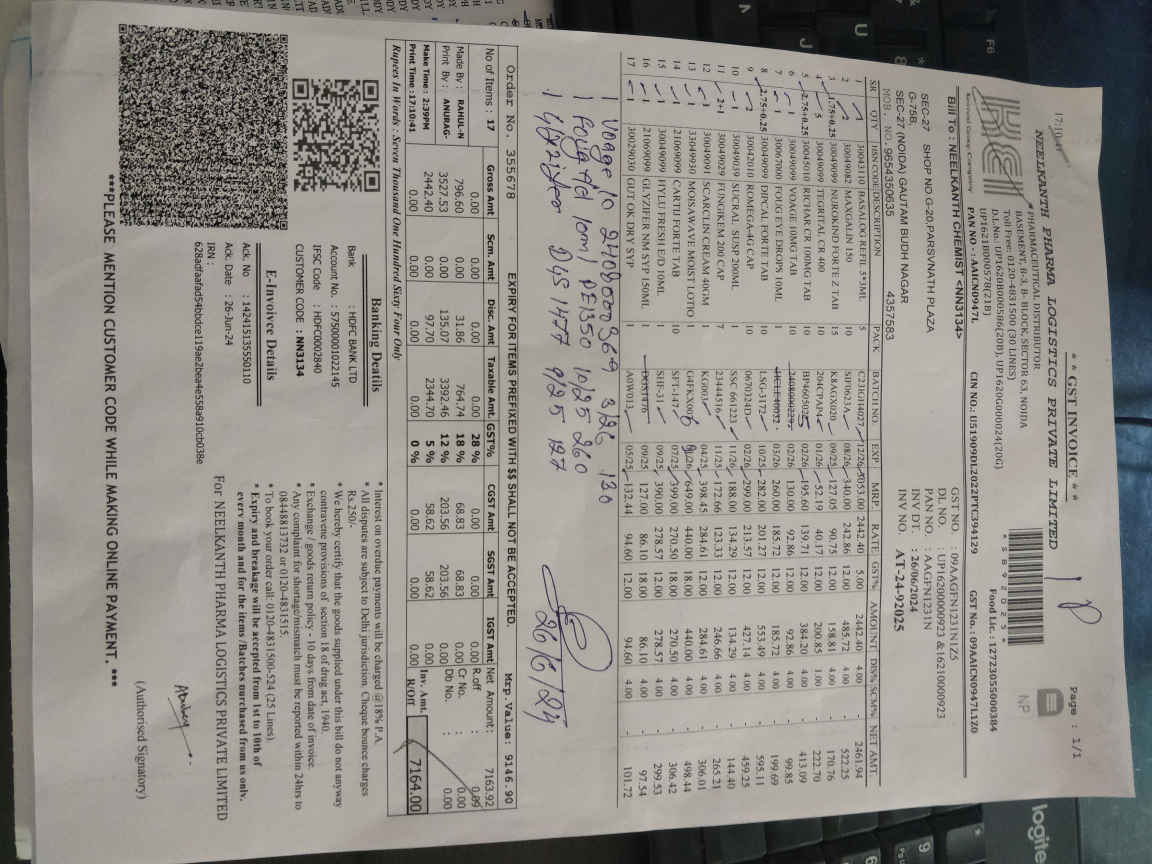 17:10:41
* * GST INVOICE * *
Page : 1/1
NEELKANTH PHARMA LOGISTICS PRIVATE LIMITED
* 5 8 9 2 0 2 5 *
PHARMACEUTICAL DISTRIBUTOR
BASEMENT, B-3, I - BLOCK, SECTOR 63, NOIDA
Toll Free: 0120-4831500 (30 LINES)
D.L.No.: UP1620B000586(20B), UP1620G000024(20G)
UP1621B000578(21B)
Food Lic.: 12723055000384
PAN NO - : AAICN0947L
CIN NO.: U51909DL2022PTC394129
GST No.: 09AAICN0947L1Z0
Bill To : NEELKANTH CHEMIST <NN3134>
SEC-27 SHOP NO.G-20,PARSVNATH PLAZA
G-75B,
SEC-27 (NOIDA) GAUTAM BUDH NAGAR
MOB. NO. 9654350635 4357583
GST NO. : 09AAGFN1231N1Z5
DL NO. : UP16200000923 & 16210000923
PAN NO. : AAGFN1231N
INV DT. : 26/06/2024
INV NO. AT-24-92025
SR QTY HSN CODE DESCRIPTION PACK BATCH NO. EXP. MRP. RATE GST% AMOUNT DIS% SCM% NET AMT.
1 1 30043110 BASALOG REFIL 5*3ML 5 C23IGH4027 12/26 3053.00 2442.40 5.00 2442.40 4.00 - 2461.94
2 2 30049082 MAXGALIN 150 10 SIF0623A 08/26 340.00 242.86 12.00 485.72 4.00 - 522.25
3 1.75+0.25 30049099 NUROKIND FORTE Z TAB 15 K8AGX020 09/25 127.05 90.75 12.00 158.81 4.00 - 170.76
4 5 30049099 TEGRITAL CR 400 10 204CPAP4 01/26 52.19 40.17 12.00 200.85 1.00 - 222.70
5 2.75+0.25 30045010 RICHAR CR 100MG TAB 10 BP4605025 02/26 195.60 139.71 12.00 384.20 4.00 - 413.09
6 1 30049099 VOAGE 10MG TAB 10 2408000229 02/26 130.00 92.86 12.00 92.86 4.00 - 99.85
7 1 30067000 FOUG EYE DROPS 10ML 1 HCLE40032 03/26 260.00 185.72 12.00 185.72 4.00 - 199.69
8 2.75+0.25 30049099 DIPCAL FORTE TAB 10 LSG-3172 10/25 282.00 201.27 12.00 553.49 4.00 - 595.11
9 2 30042010 ROMEGA-4G CAP 10 0670324D 02/26 299.00 213.57 12.00 427.14 4.00 - 459.25
10 1 30049039 SUCRAL SUSP 200ML 1 SSC 661223 11/26 188.00 134.29 12.00 134.29 4.00 - 144.40
11 2 30049029 FUNGIKEM 200 CAP 7 23444516 11/25 172.66 123.33 12.00 246.66 4.00 - 265.21
12 1 30049091 SCARCLIN CREAM 40GM 1 KG003 04/25 398.45 284.61 12.00 284.61 4.00 - 306.01
13 1 33049930 MOISAWAVE MOIST LOTIO 1 G4FKX006 01/26 649.00 440.00 18.00 440.00 4.00 - 498.44
14 1 21069099 CARTIJ FORTE TAB 10 SFT-147 07/25 399.00 270.50 18.00 270.50 4.00 - 306.42
15 1 30049099 HYLU FRESH E/D 10ML 1 SHF-31 09/25 390.00 278.57 12.00 278.57 4.00 - 299.53
16 1 21069099 GLYZIFER NM SYP 150ML 1 DGS1476 09/25 127.00 86.10 18.00 86.10 4.00 - 97.54
17 1 30029030 GUT OK DRY SYP 1 A0W013 05/25 132.44 94.60 12.00 94.60 4.00 - 101.72
1 Voage 10 3/26 130
1 Foug e/d 10ml 10/25 260
9/25 127
26/6/24
Order No. 355678 EXPIRY FOR ITEMS PREFIXED WITH $$ SHALL NOT BE ACCEPTED. Mrp.Value: 9146.90
No of Items : 17 Gross Amt Scm. Amt Disc. Amt Taxable Amt. GST% CGST Amt SGST Amt IGST Amt Net Amount: 7163.92
0.00 0.00 0.00 0.00 28 % 0.00 0.00 0.00 R.off : 0.09
Made By : RAHUL-N 796.60 0.00 31.86 764.74 18 % 68.83 68.83 0.00 Cr No. : 0.00
Print By : ANURAG- 3527.53 0.00 135.07 3392.46 12 % 203.56 203.56 0.00 Db No. : 0.00
Make Time : 2:39PM 2442.40 0.00 97.70 2344.70 5 % 58.62 58.62 0.00 Inv. Amt. 7164.00
Print Time :17:10:41 0.00 0.00 0.00 0.00 0 % 0.00 0.00 0.00 R/OFF
Rupees In Words : Seven Thousand One Hundred Sixty Four Only
Banking Deatils
Bank : HDFC BANK LTD
Account No. : 57500001022145
IFSC Code : HDFC0002840
CUSTOMER CODE : NN3134
E-Invoivce Details
Ack. No : 142415135550110
Ack. Date : 26-Jun-24
IRN :
628adfaafad54bbdce119ae2bea4e558a910cb038e
* Interest on overdue payments will be charged @18% P.A
* All disputes are subject to Delhi jurisdiction. Cheque bounce charges
Rs.250/-
* We hereby certify that the goods supplied under this bill do not anyway
contravene provisions of section 18 of drug act, 1940.
* Exchange / goods return policy - 10 days from date of invoice.
* Any complaint for shortage/mismatch must be reported within 24hrs to
08448813732 or 0120-4831515.
* To book your order call: 0120-4831500-524 (25 Lines).
* Expiry and breakage will be accepted from 1st to 10th of
every month and for the items/Batches purchased from us only.
For NEELKANTH PHARMA LOGISTICS PRIVATE LIMITED
(Authorised Signatory)
***PLEASE MENTION CUSTOMER CODE WHILE MAKING ONLINE PAYMENT. ***
logite